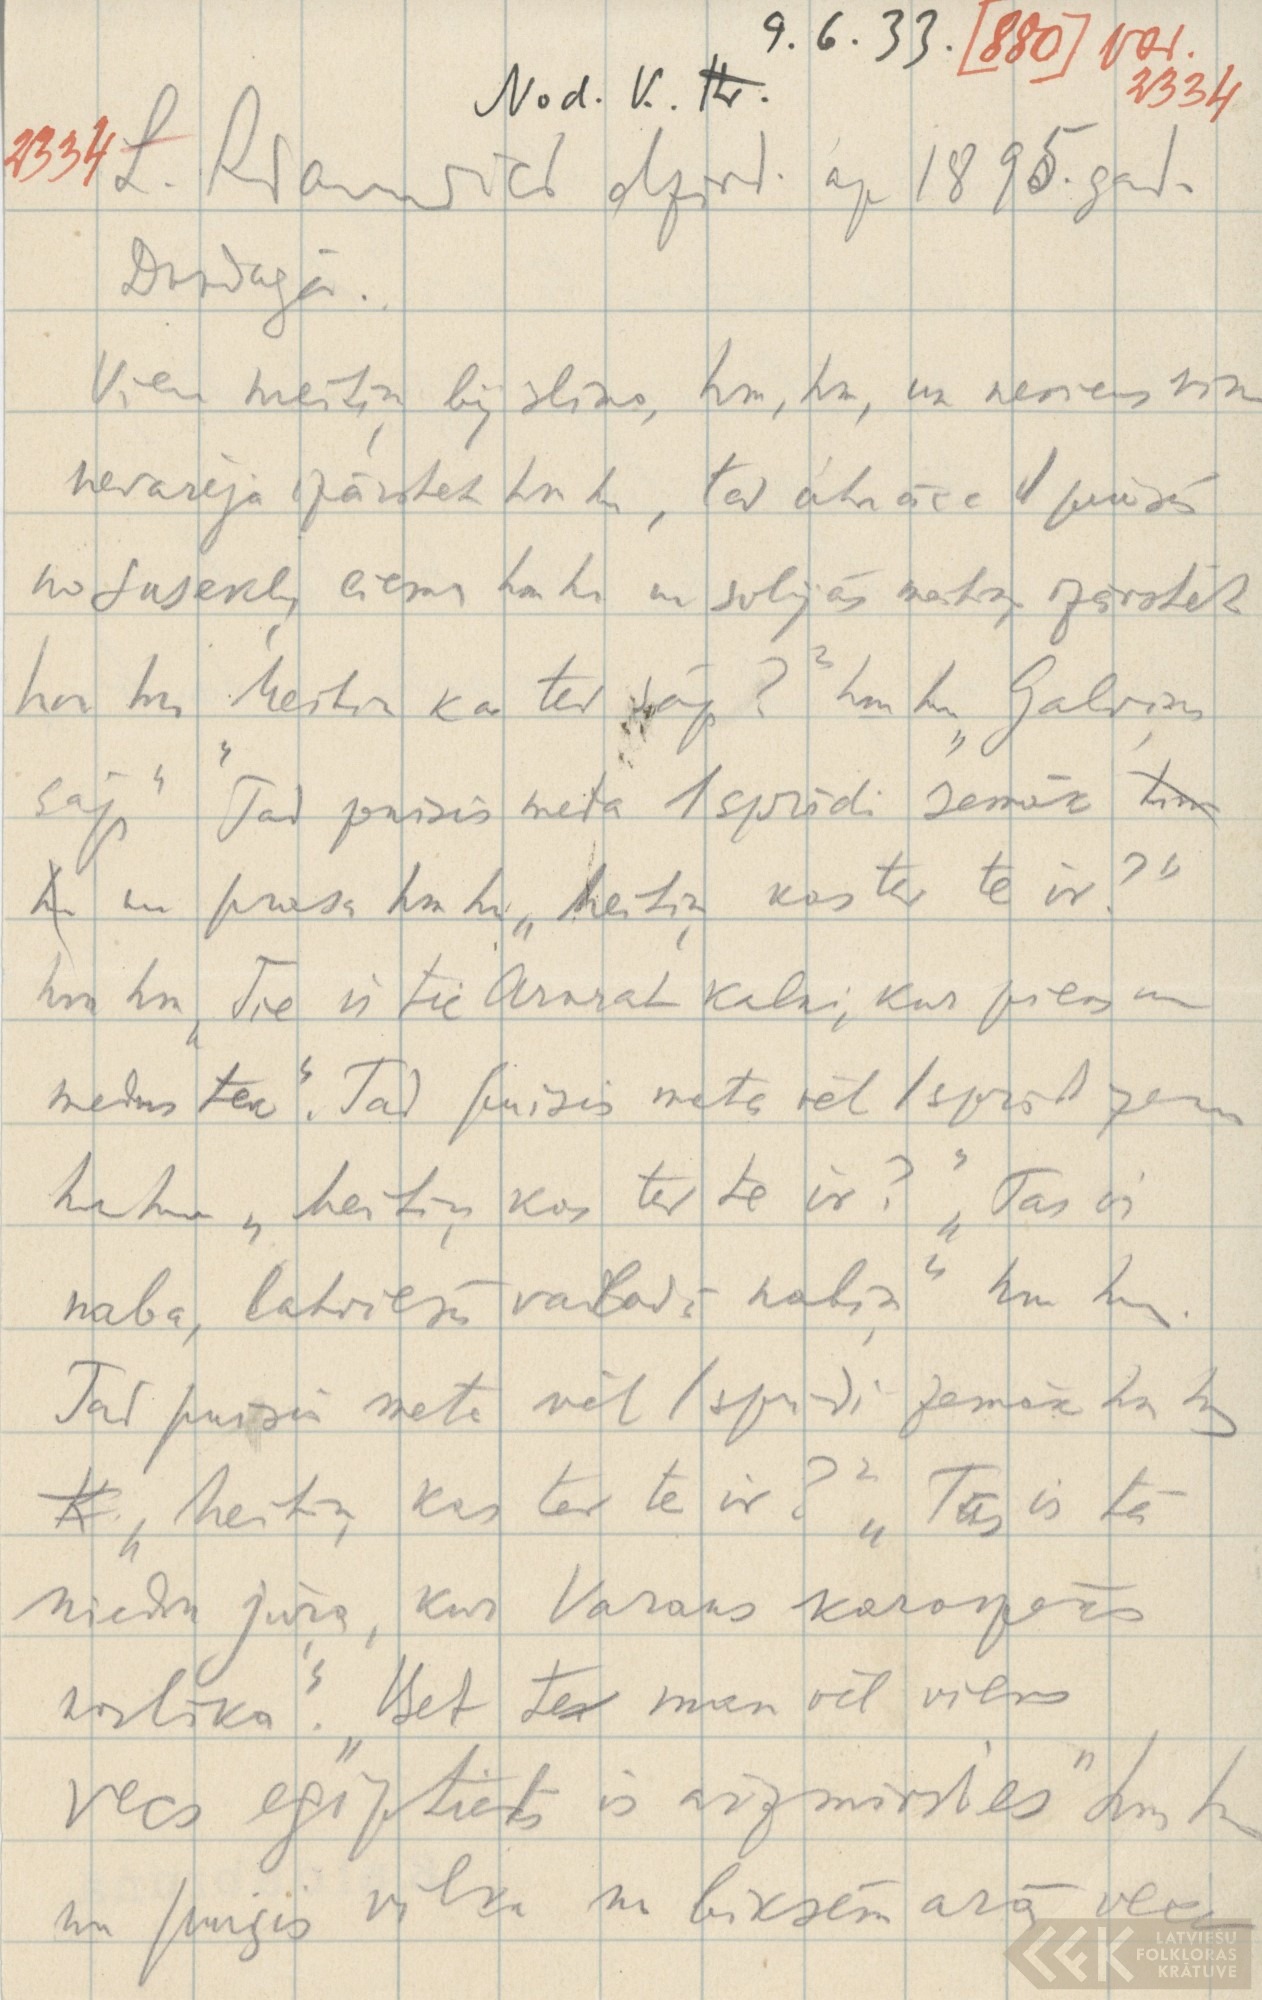 9.6.33. [880] var.
2334
Nod. V. Kr.
2334 L. Adamovičs dzird. ap 1895. gad.
Dundagā.
Viena meitiņ bij slima, hm, hm, un neviens viņ
nevarēja izārstet hm hm, tad atnāce 1 puisis
no Susekļ ciema hm hm un solijās meitiņ izārstēt
hm hm Meitiņ kas tev sāp?" hm hm „Galviņ
sāp" "Tad puisis meta 1 sprīdi zemāk hm
hm un prasa hm hm „Meitiņ kas tev te ir?"
hm hm „Tie ir tie Ararat kalni, kur piens un
medus tek". Tad puisis meta vēl 1 sprīd zem
hm hm „Meitiņ kas tev te ir?" „Tas ir
naba, latviešu valodā nabiņ" hm hm.
Tad puisis meta vēl 1 sprīdi zemāk hm hm
„Meitiņ kas tev te ir?" „Tas ir tā
niedru jūŗa, kur Varaus karaspēks
noslīka". „Bet tad man vēl viens
vecs egiptiets ir aizmirsties" hm hm
un puisis vilka no biksēm arā vecu
LATVIEŠU
FOLKLORAS
KRĀTUVE